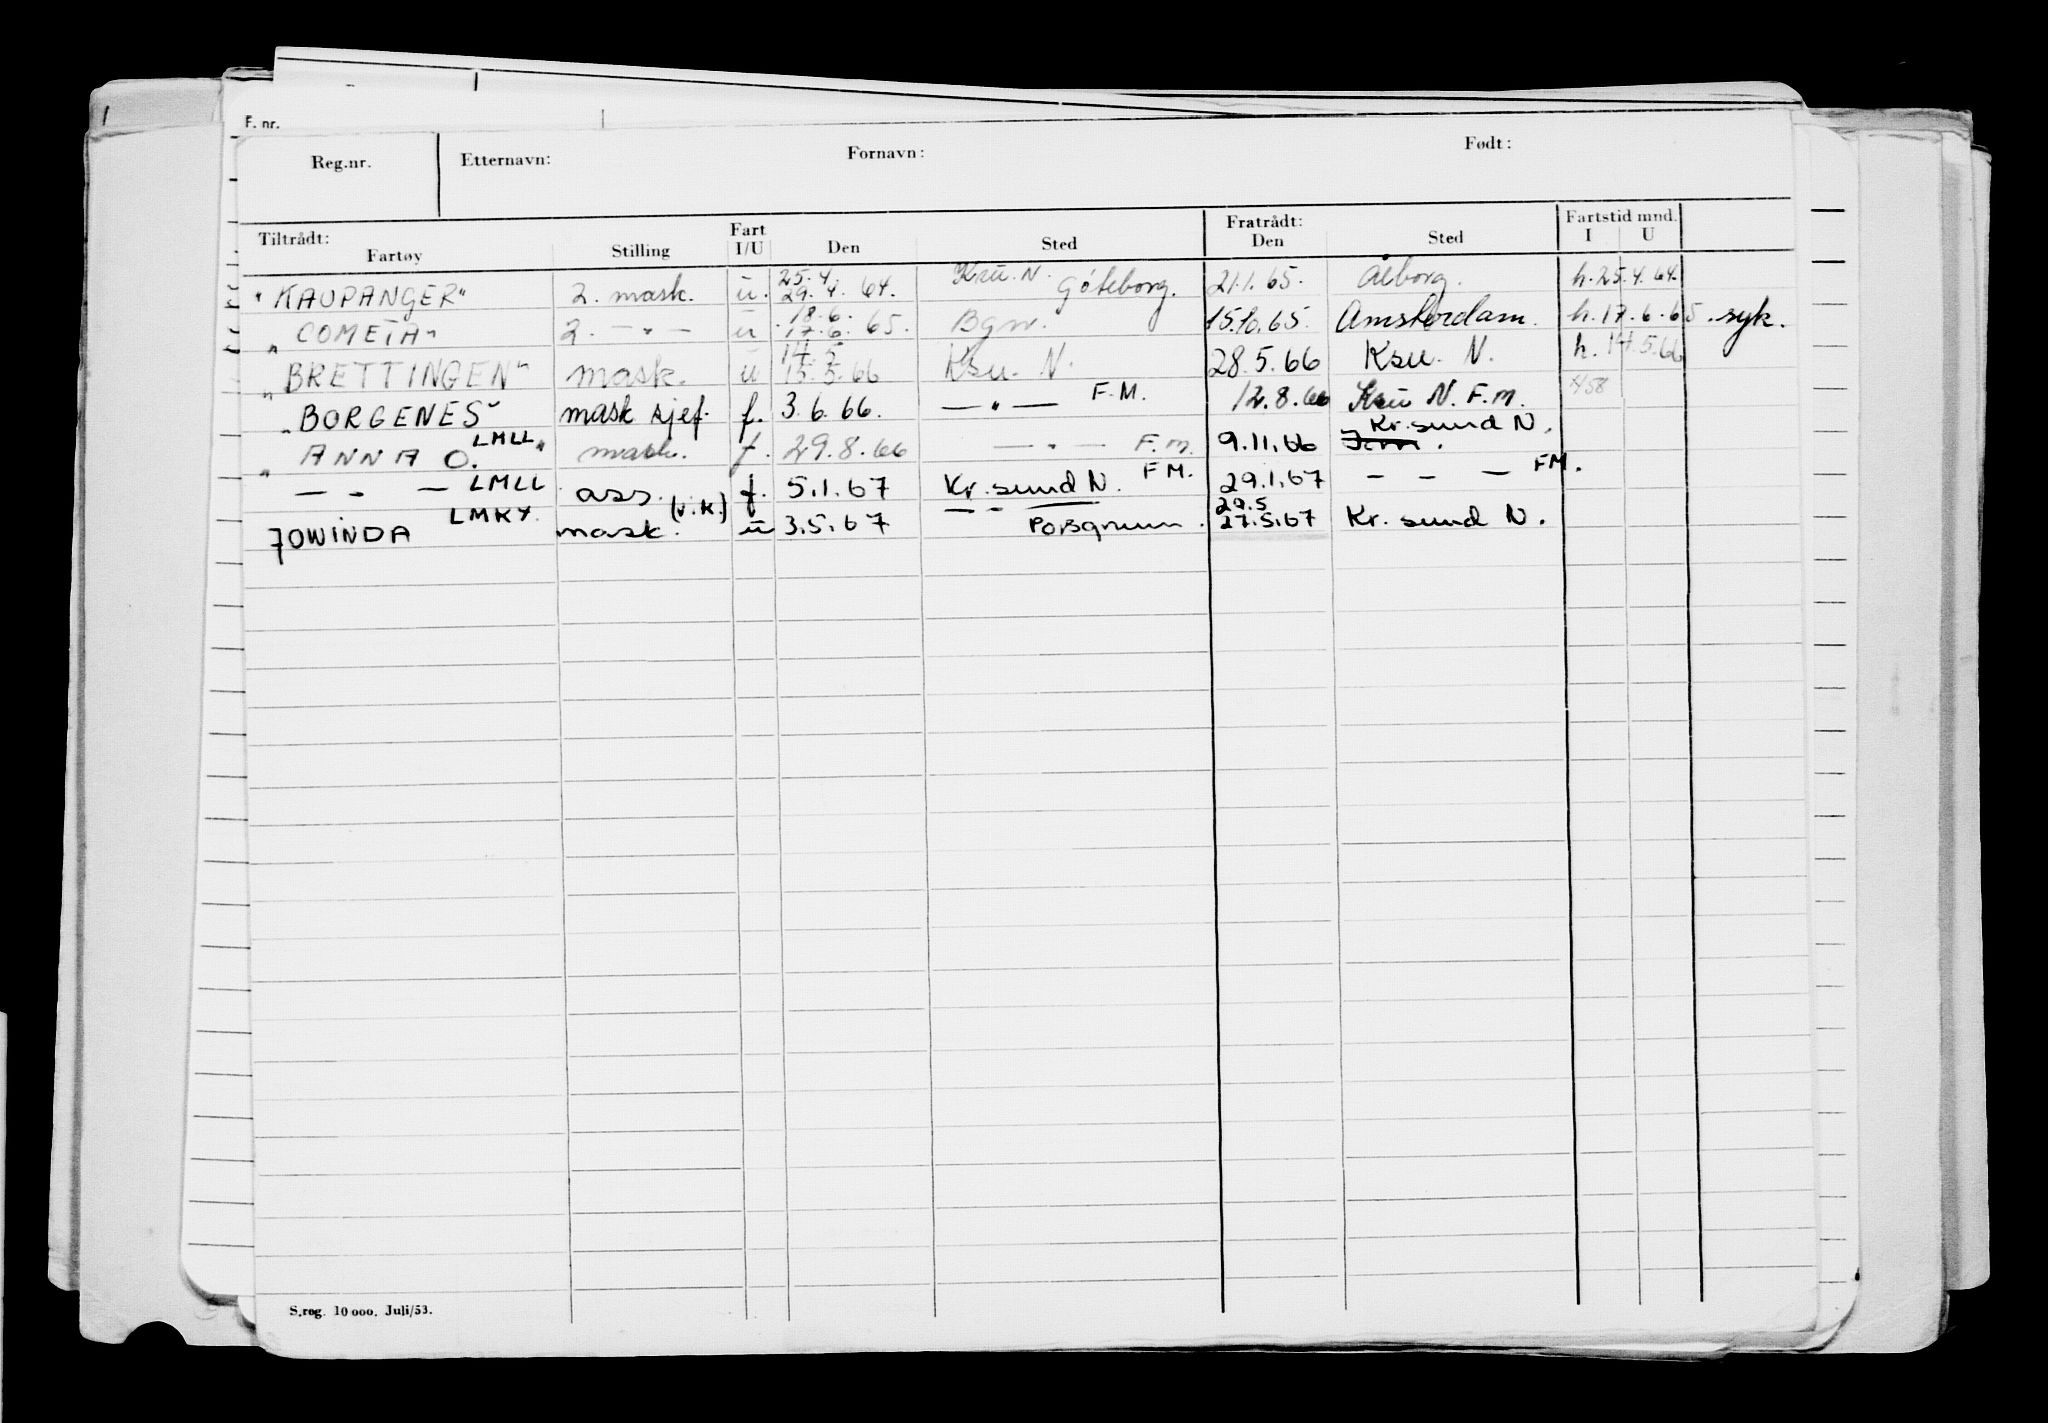 F. nr.
Reg.nr. Etternavn: Fornavn: Født:
Tiltrådt: Fart Fratrådt: Fartstid mnd.
Fartøy Stilling I/U Den Sted Den Sted I U
25.4. Ksu. N.
"KAUPANGER" 2. mask. u. 29.4.64. Göteborg. 21.1.65. Ålborg. h.25.4.64.
18.6.
"COMETA" 2. — " — u 17.6.65. Bgn. 15.10.65. Amsterdam. h.17.6.65. syk.
14.5
"BRETTINGEN" mask. u 15.5.66 Ksu. N. 28.5.66 Ksu. N. h.14.5.66
"BORGENES" mask sjef. f. 3.6.66. — " — F.M. 12.8.66 Ksu N. F.m. 458
LMLL Kr.sund N.
"ANNA O." mask. f. 29.8.66 — " — F.m. 9.11.66
— " — LMLL ass. (v.k.) f. 5.1.67 Kr.sund N. F M. 29.1.67 — — — FM.
LMKY. — " — 29.5
JOWINDA mask. u 3.5.67 Porsgrunn. 27.5.67 Kr. sund N.
S.reg. 10 000. Juli/53.